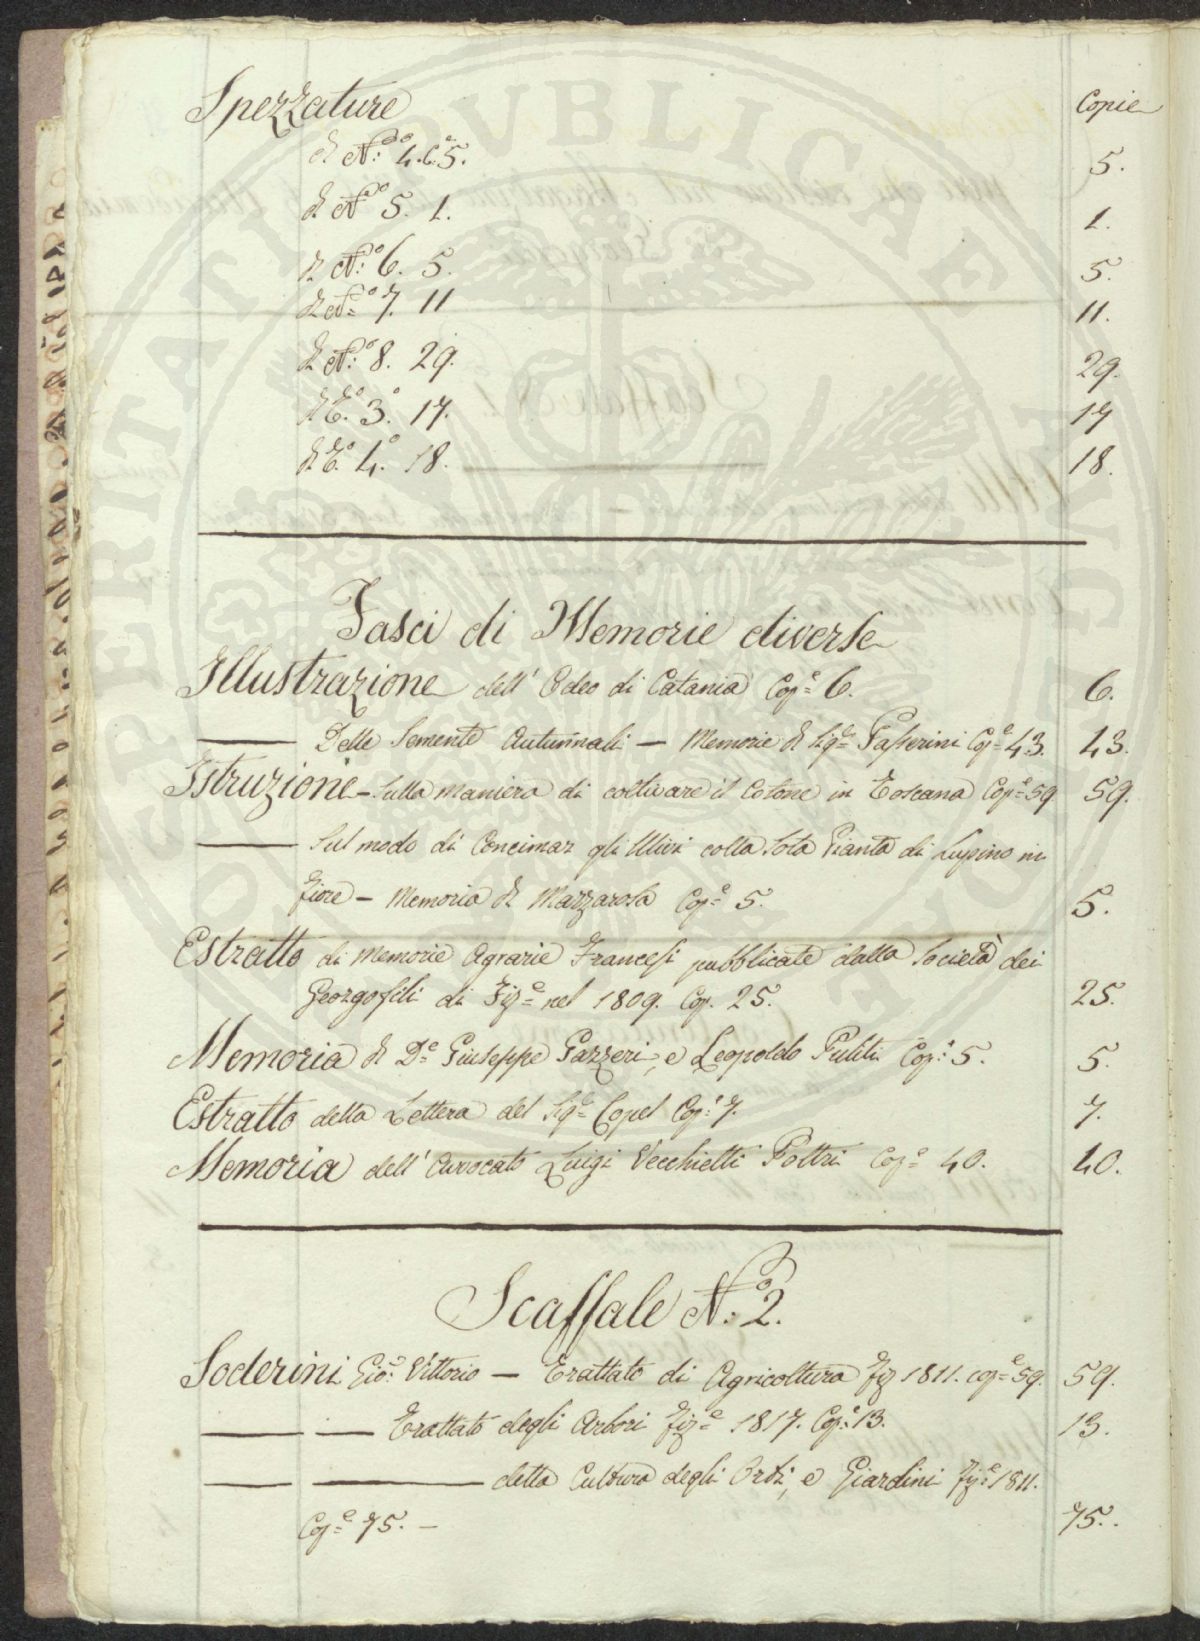 Spezzature Copie
di N.º 4. e 5. 5.
di Nº 5. 1. 1.
di N.º 6. 5. 5.
di N.º 7. 11 11.
di N.º 8. 29. 29.
di Tº. 3.º 17. 17
di Tº. 4.º 18. 18.
Fasci di Memorie diverse
Illustrazione dell' Odeo di Catania Cop.e 6. 6.
— Delle Semente Autunnali — Memorie di Sig.e Passerini Cop.e 43. 43.
Istruzione — Sulla maniera di coltivare il Cotone in Toscana Cop.e 59 59.
— Sul modo di Concimar gli Ulivi colla sola Pianta di Lupino in
fiore — Memoria di Mazzarosa Cop.e 5. 5.
Estratto di Memorie Agrarie Francesi pubblicate dalla Società dei
Georgofili di Fiz.e nel 1809. Cop. 25. 25.
Memoria di D.e Giuseppe Pazzeri, e Leopoldo Puliti Cop.e 5. 5.
Estratto della Lettera del Sig.e Copel Cop.e 7. 7.
Memoria dell' Avvocato Luigi Vecchietti Poltri Cop.e 40. 40.
Scaffale N.º 2.
Soderini Gio: Vittorio — Trattato di Agricoltura Fiz 1811. cop.e 59. 59.
— — Trattato degli Arbori Fiz.e 1817. Cop.e 13. 13.
— — della Cultura degli Orti, e Giardini Fiz.e 1811.
Cop.e 75. — 75.